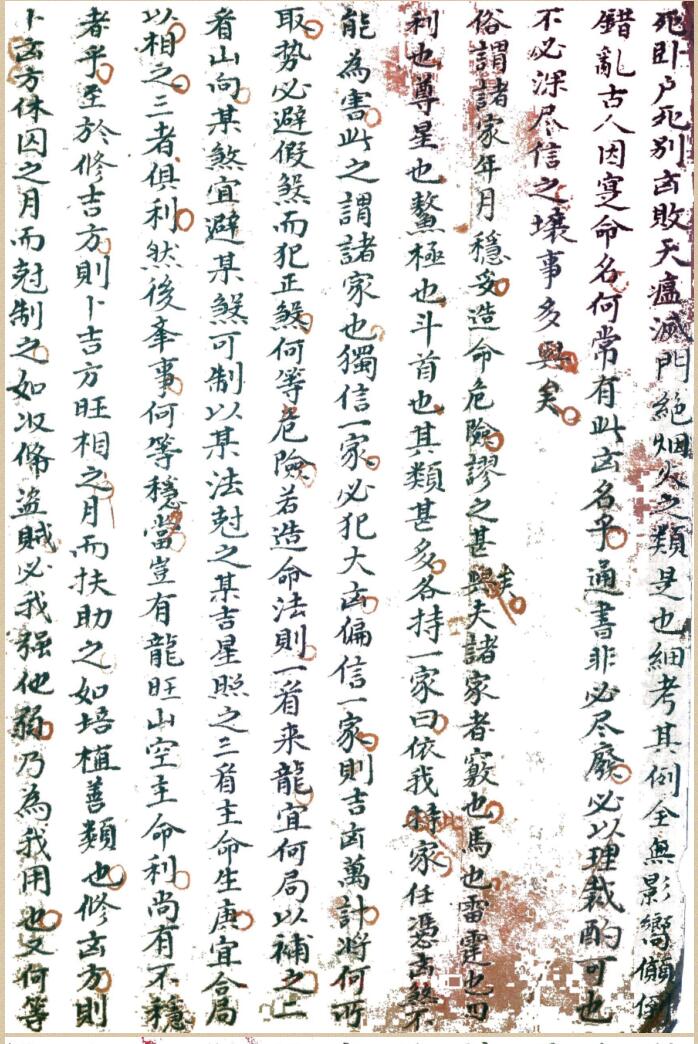 死卧尸死别凶敗天瘟滅門絶烟火之類是也細考其例全無影嚮傎倒
錯亂古人因寔命名何常有此凶名乎通書非必尽廢必以理裁酌可也
不必深尽信之壊事多矣
俗謂諸家年月穩妥造命危險謬之甚矣夫諸家者竅也馬也雷霆也四
利也尊星也鰲極也斗首也其類甚多各持一家曰依我家任憑凶煞不
能為害此之謂諸家也獨信一家必犯大凶偏信一家則吉凶萬計將何所
取势必避假煞而犯正煞何等危險若造命法則一看来龍宜何局以補之二
看山向某煞宜避某煞可制以某法尅之某吉星照之三看主命生庚宜合局
以相之三者俱利然後夆事何等穩當豈有龍旺山空主命利尚有不穩
者乎至於修吉方則卜吉方旺相之月而扶助之如培植善類也修凶方則
卜凶方休囚之月而尅制之如收僃盜賊必我强他弱乃為我用也又何等